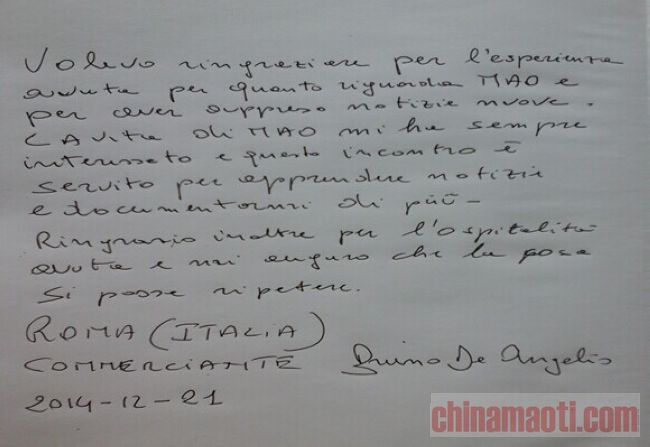 Volevo ringraziare per l'esperienza
avuta per quanto riguarda MAO e
per aver appreso notizie nuove.
LA vita di MAO mi ha sempre
interessato e questo incontro è
servito per apprendere notizie
e documentarmi di più -
Ringrazio inoltre per l'ospitalità
avuta e mi auguro che la cosa
si possa ripetere.
ROMA (ITALIA)
COMMERCIANTE Bruno De Angelis
2014-12-21
chinamaoti.com